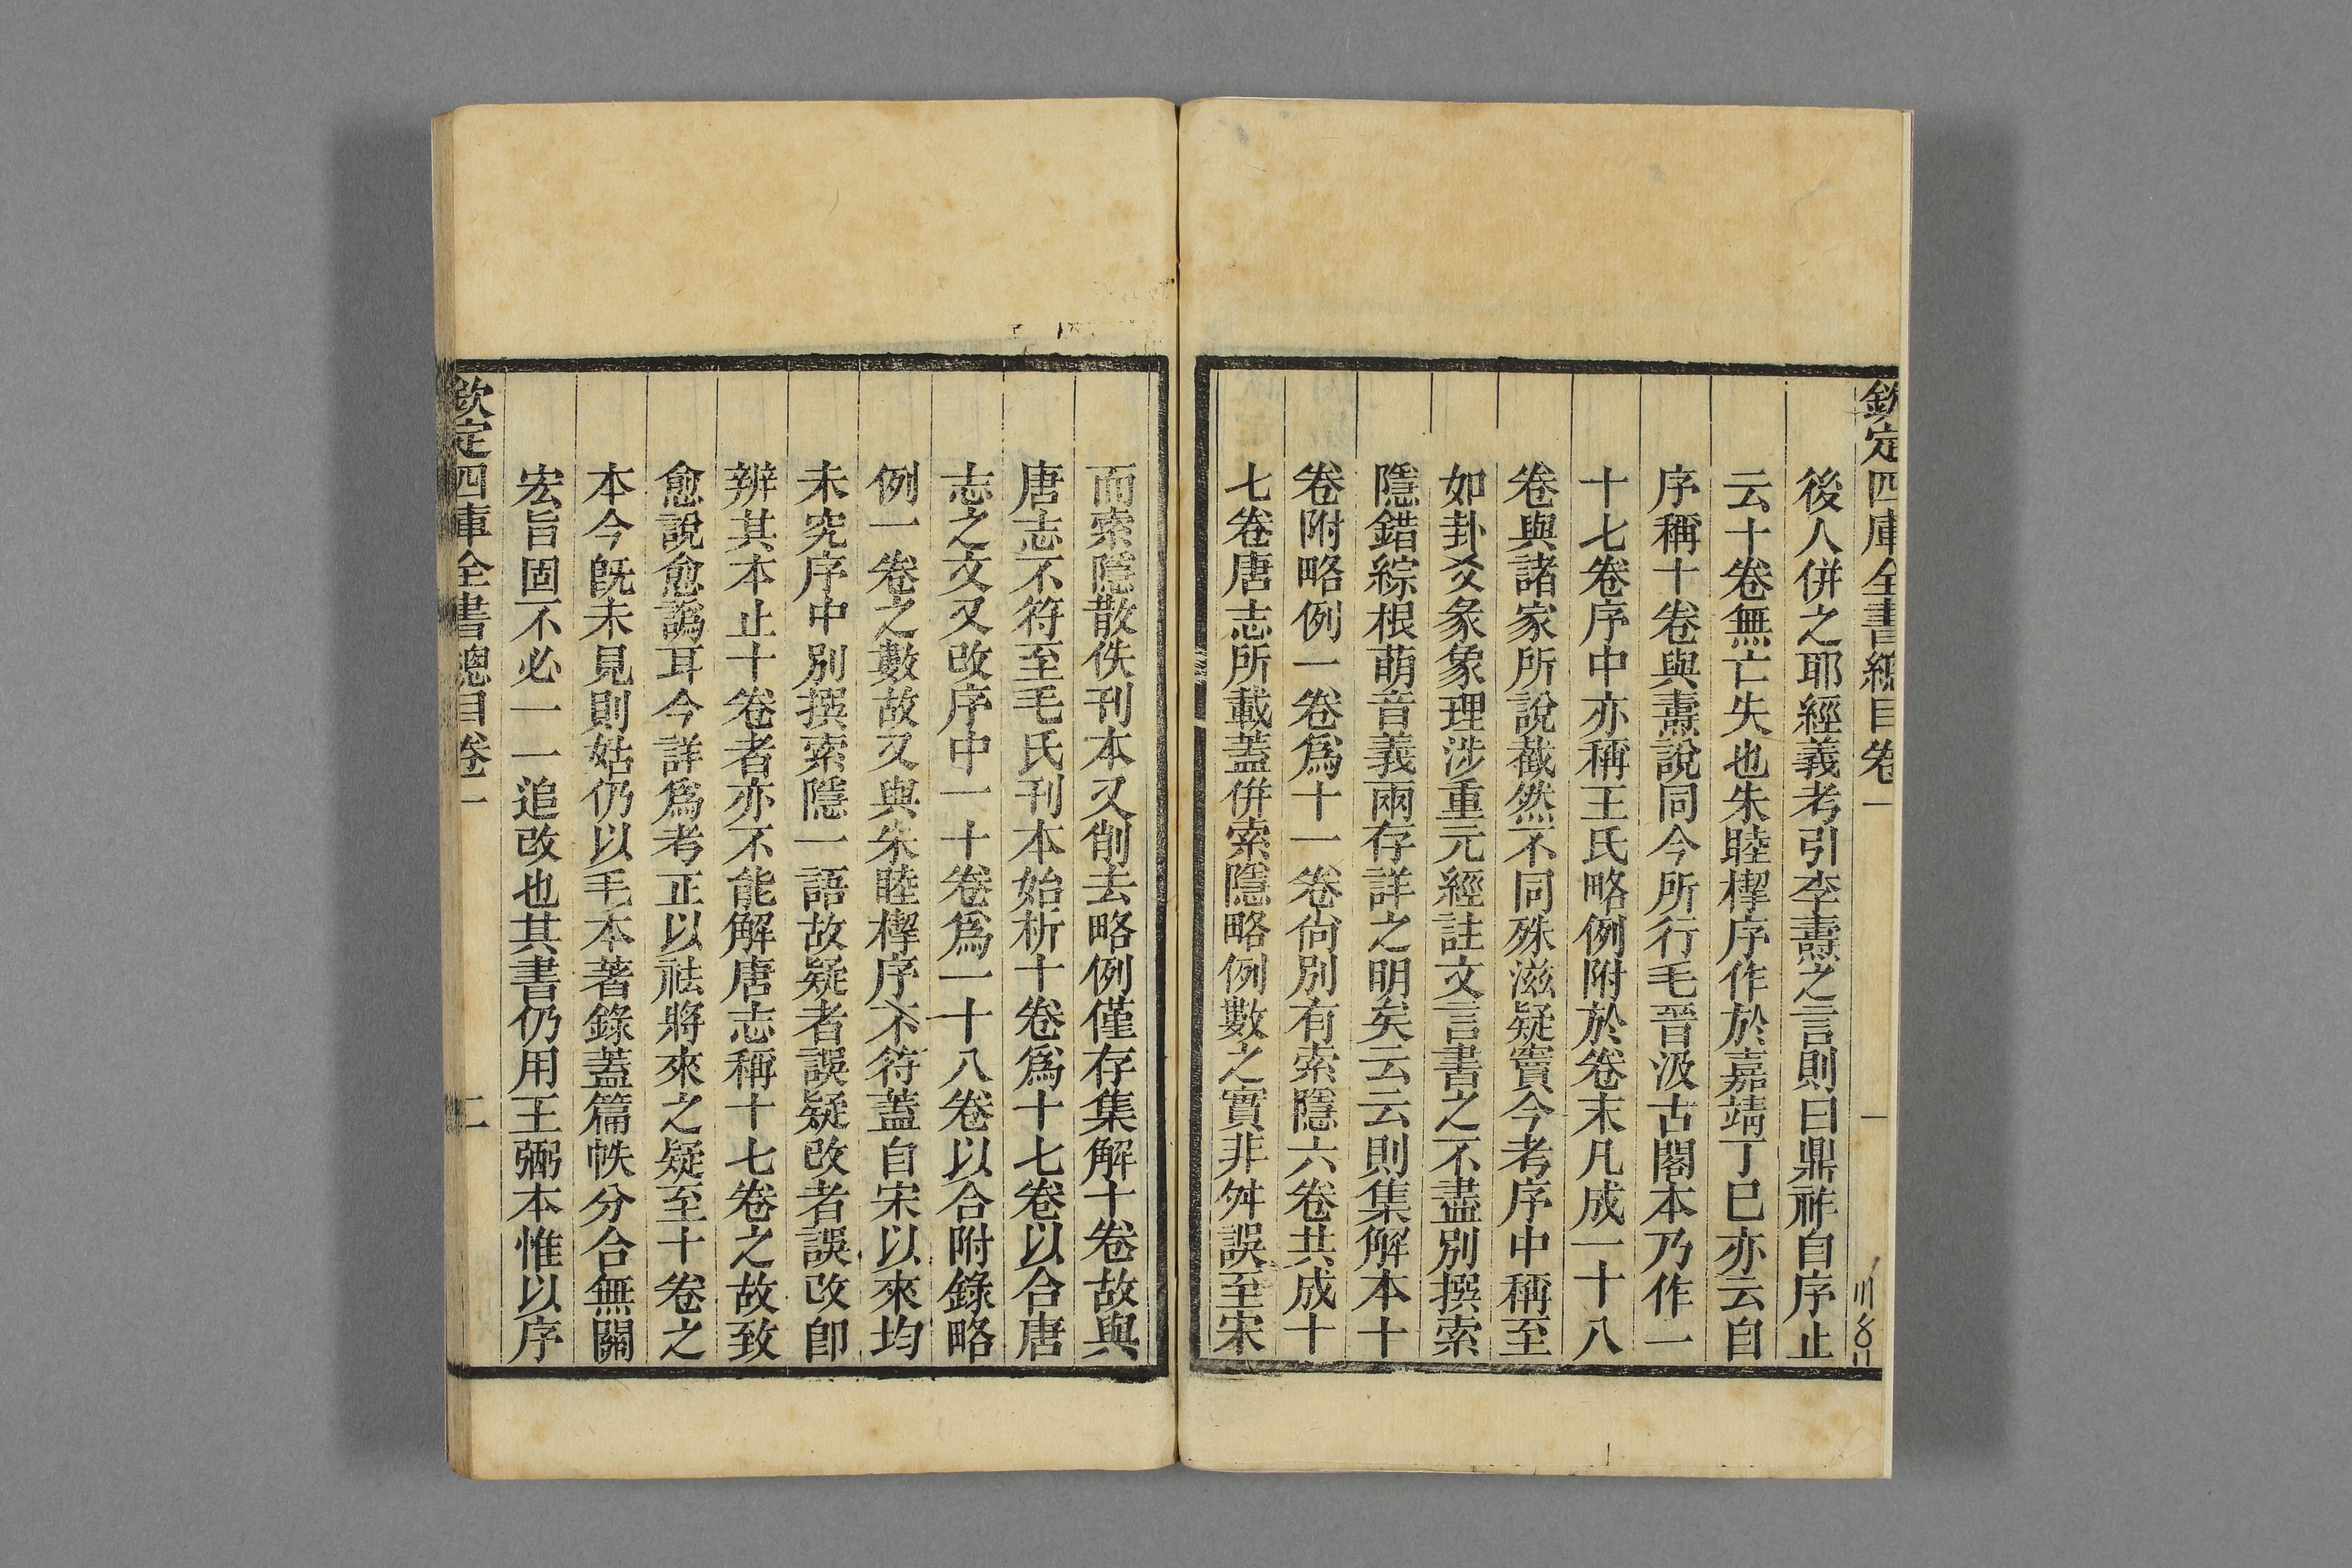 欽定四庫全書總目卷一
一
後人併之耶經義考引李燾之言則曰鼎祚自序止
云十卷無亡失也朱睦㮮序作於嘉靖丁巳亦云自
序稱十卷與燾說同今所行毛晉汲古閣本乃作一
十七卷序中亦稱王氏略例附於卷末凡成一十八
卷與諸家所說截然不同殊滋疑竇今考序中稱至
如卦爻彖象理涉重元經註文言書之不盡別撰索
隱錯綜根萌音義兩存詳之明矣云云則集解本十
卷附略例一卷爲十一卷尙別有索隱六卷共成十
七卷唐志所載蓋併索隱略例數之實非舛誤至宋
而索隱散佚刊本又削去略例僅存集解十卷故與
唐志不符至毛氏刊本始析十卷爲十七卷以合唐
志之文又改序中一十卷爲一十八卷以合附錄略
例一卷之數故又與朱睦㮮序不符蓋自宋以來均
未究序中別撰索隱一語故疑者誤疑改者誤改卽
辨其本止十卷者亦不能解唐志稱十七卷之故致
愈說愈譌耳今詳爲考正以祛將來之疑至十卷之
本今旣未見則姑仍以毛本著錄蓋篇帙分合無關
宏旨固不必一一追改也其書仍用王弼本惟以序
欽定四庫全書總目卷一
二